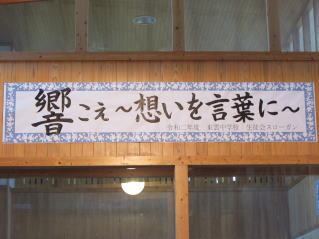 響こえ～想いを言葉に～
令和二年度 東雲中学校 生徒会スローガン